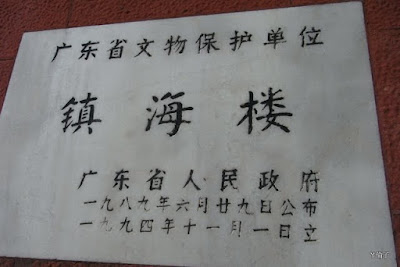 广东省文物保护单位
镇海楼
广东省人民政府
一九八九年六月廿九日公布
一九九四年十一月一日立